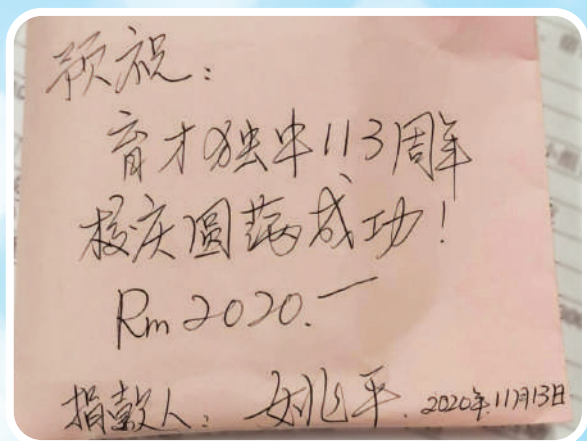 预祝：
育才独中113周年
校庆圆满成功！
Rm 2020.一
捐款人：姚平. 2020年11月13日